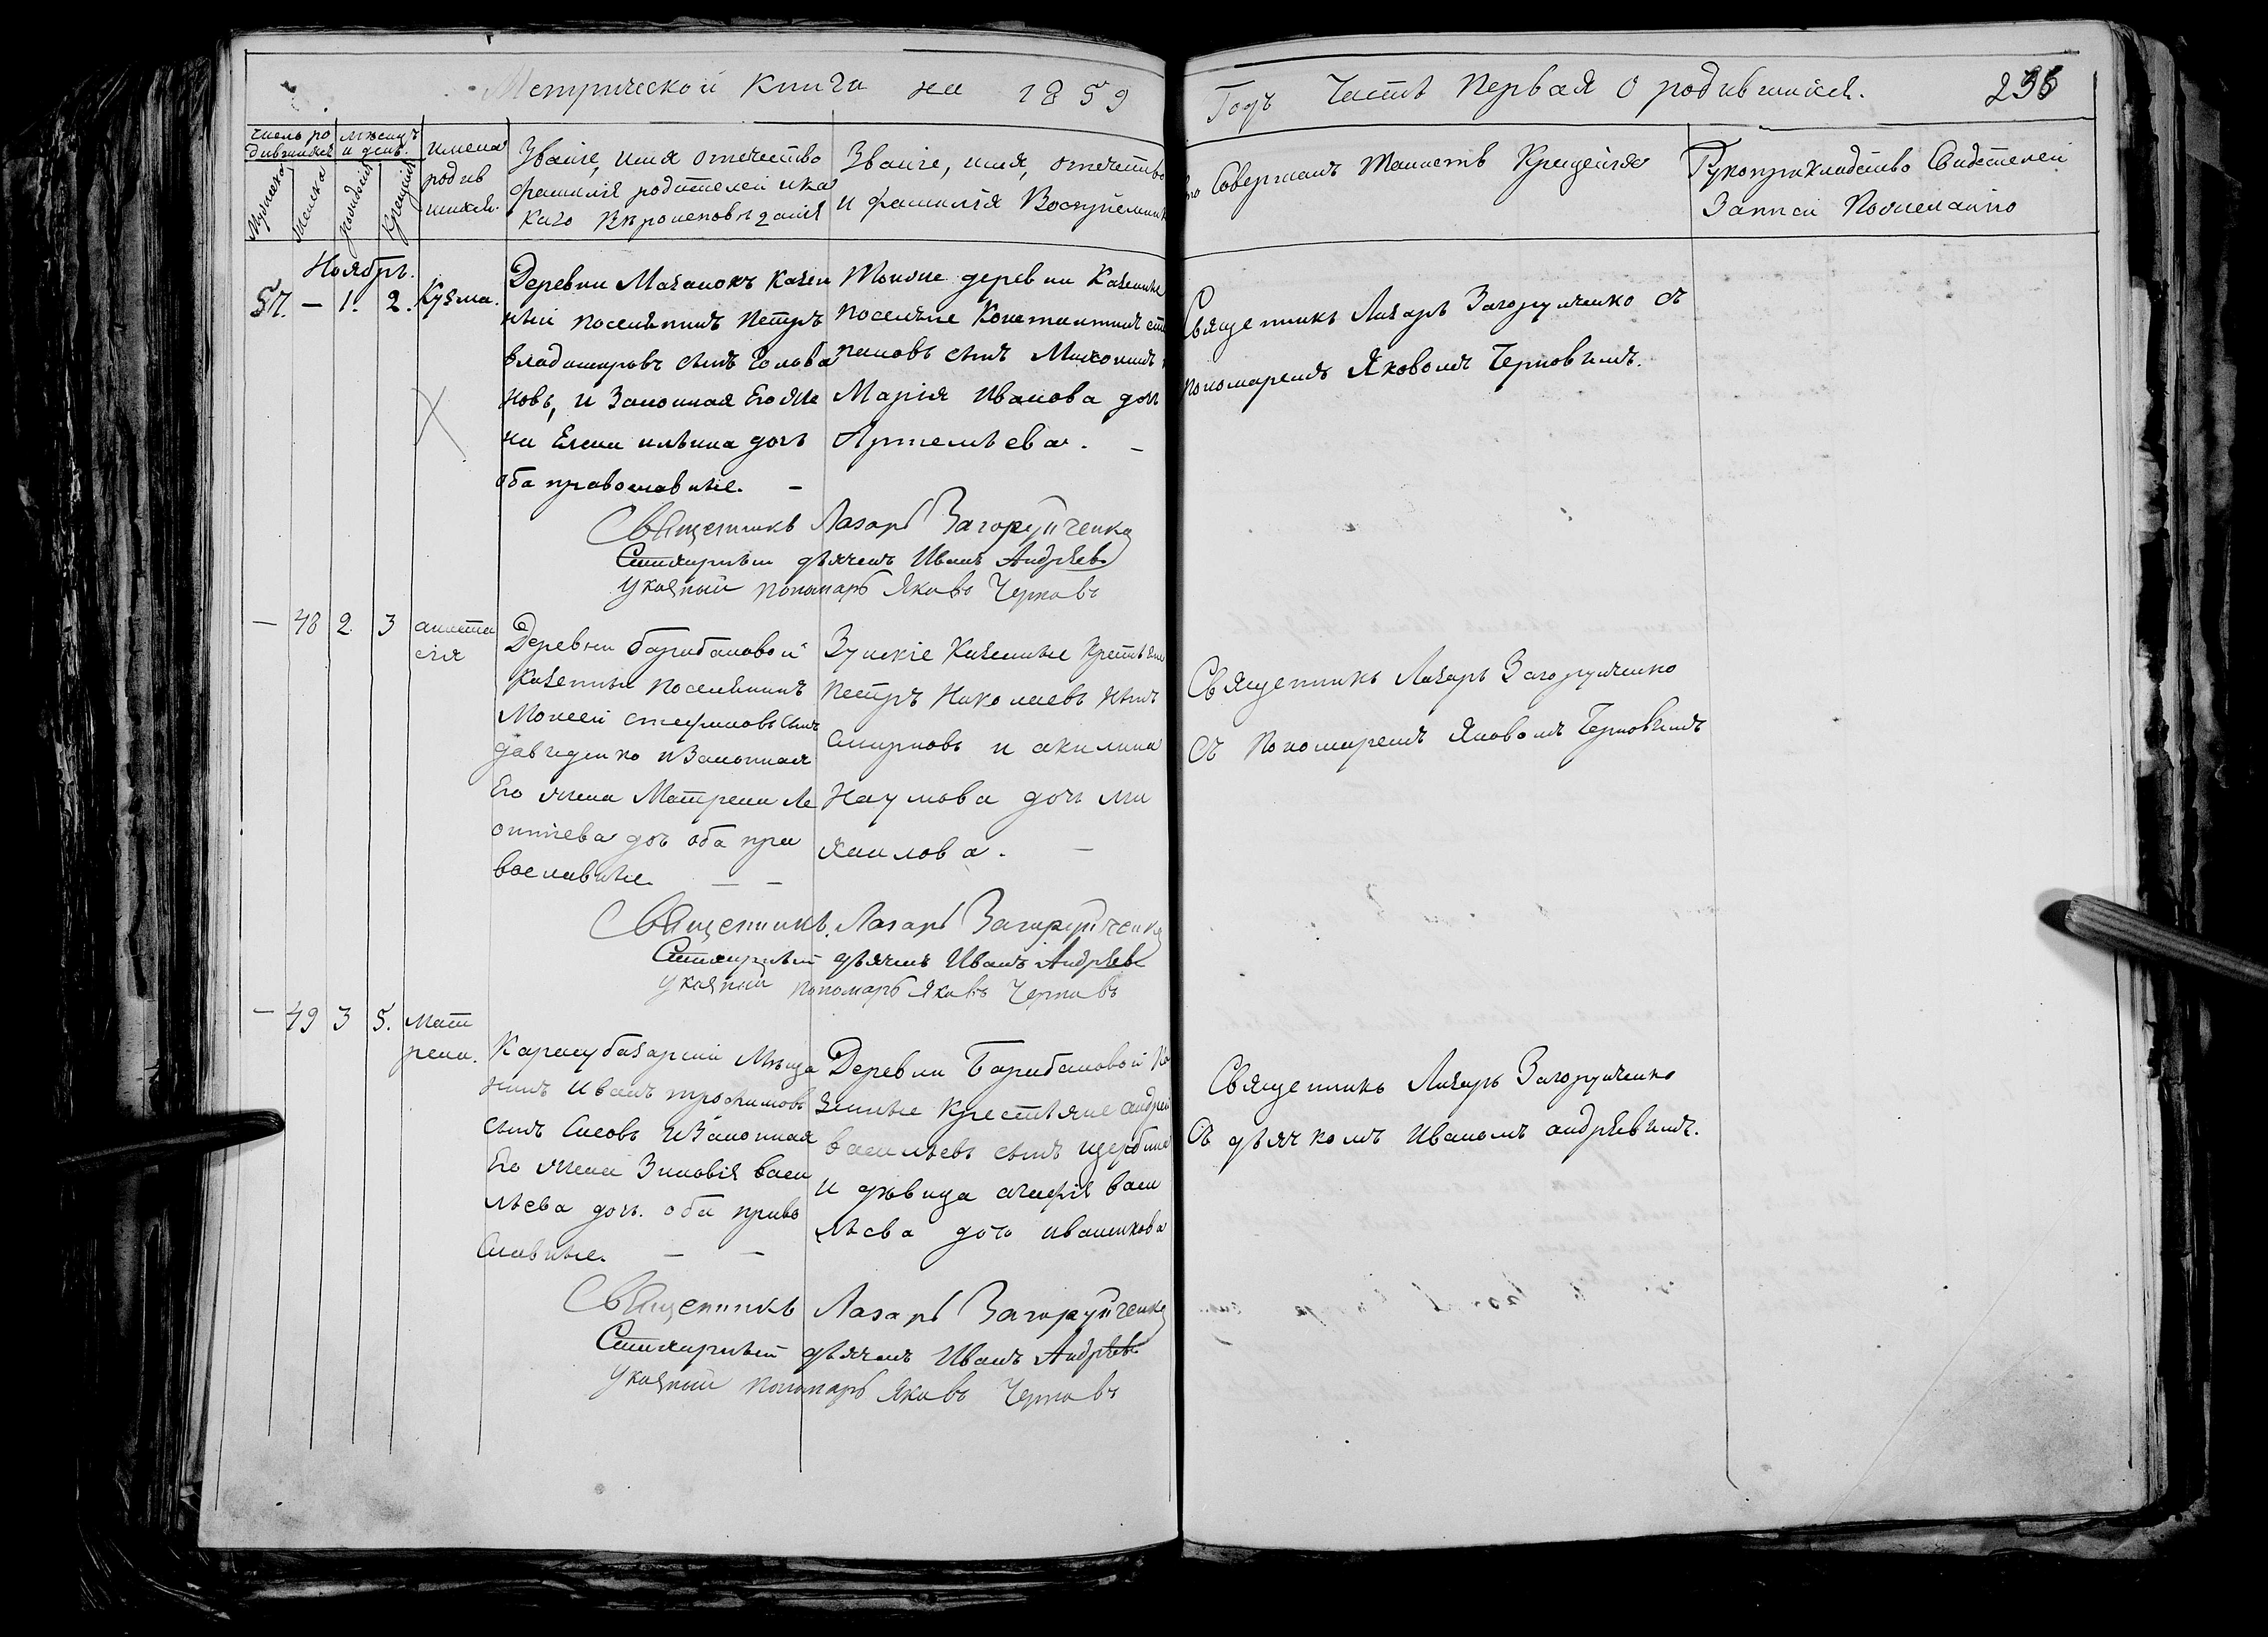 Метрической Книги на 1859
Годъ Часть Первая О родившихся.
236
число ро
дившихся
мѣсяцъ
и день.
Мужеска
Женска
рожденія
Крещенія
имена
родив
шихся.
Званіе, имя отечество
фамилія родителей и ка
каго Вѣроисповѣданія
Званіе, имя, отечество
и фамилія Воспріемник
Кто Совершалъ Таинств Крещенія
Рукоприкладство Свидетелей
Записи По желанію
Ноябрь.
57. — 1. 2. Кузма.
Деревни Мазанокъ Казен
ный поселянинъ Петръ
Владимировъ сынъ Голова
новъ, и Законная Его Же
на Елена ильина дочь
оба православные. —
Тойже деревни Казенные
поселяне Константинъ сте
пановъ сынъ
Марія Иванова доч
Артемьева. —
Священникъ Лазарь Загоруйченко съ
пономаремъ Яковомъ Черновымъ.
Священникъ Лазарь Загоруйченко
Стихарный дьячекъ Иванъ Андрѣевъ
Указный пономарь Яковъ Черновъ
— 48 2 3 анаста
сія
Деревни барабановой
Казенный поселянинъ
Моисей стефановъ сынъ
давиденко и Законная
Его жена Матрена Ле
онтіева доч оба пра
вославные. — —
Зуйскіе Казенные Крестьяне
Петръ Николаевъ сынъ
Смирновъ и акилина
Наумова дочь ми
хаилова. —
Священникъ Лазарь Загоруйченко
съ пономаремъ Яковомъ Черновымъ
Священникъ Лазарь Загоруйченко
Стихарный дьячекъ Иванъ Андрѣевъ
указный пономарь Яковъ Черновъ
— 49 3 5. Мат
рена.
Карасубазарскій Мѣща
нинъ Иванъ трофимовъ
сынъ Сисовъ и Законная
Его жена Зиновія васи
льева дочь. оба право
славные. — —
Деревни Барабановой Ка
зенные Крестьяне андрей
васильевъ сынъ щербина
и дѣвица агафія васи
льева дочь иваникова
Священникъ Лазарь Загоруйченко
съ дьячкомъ Иваномъ андрѣевымъ.
Священникъ Лазарь Загоруйченко
Стихарный дьячекъ Иванъ Андрѣевъ
указный пономарь Яковъ Черновъ